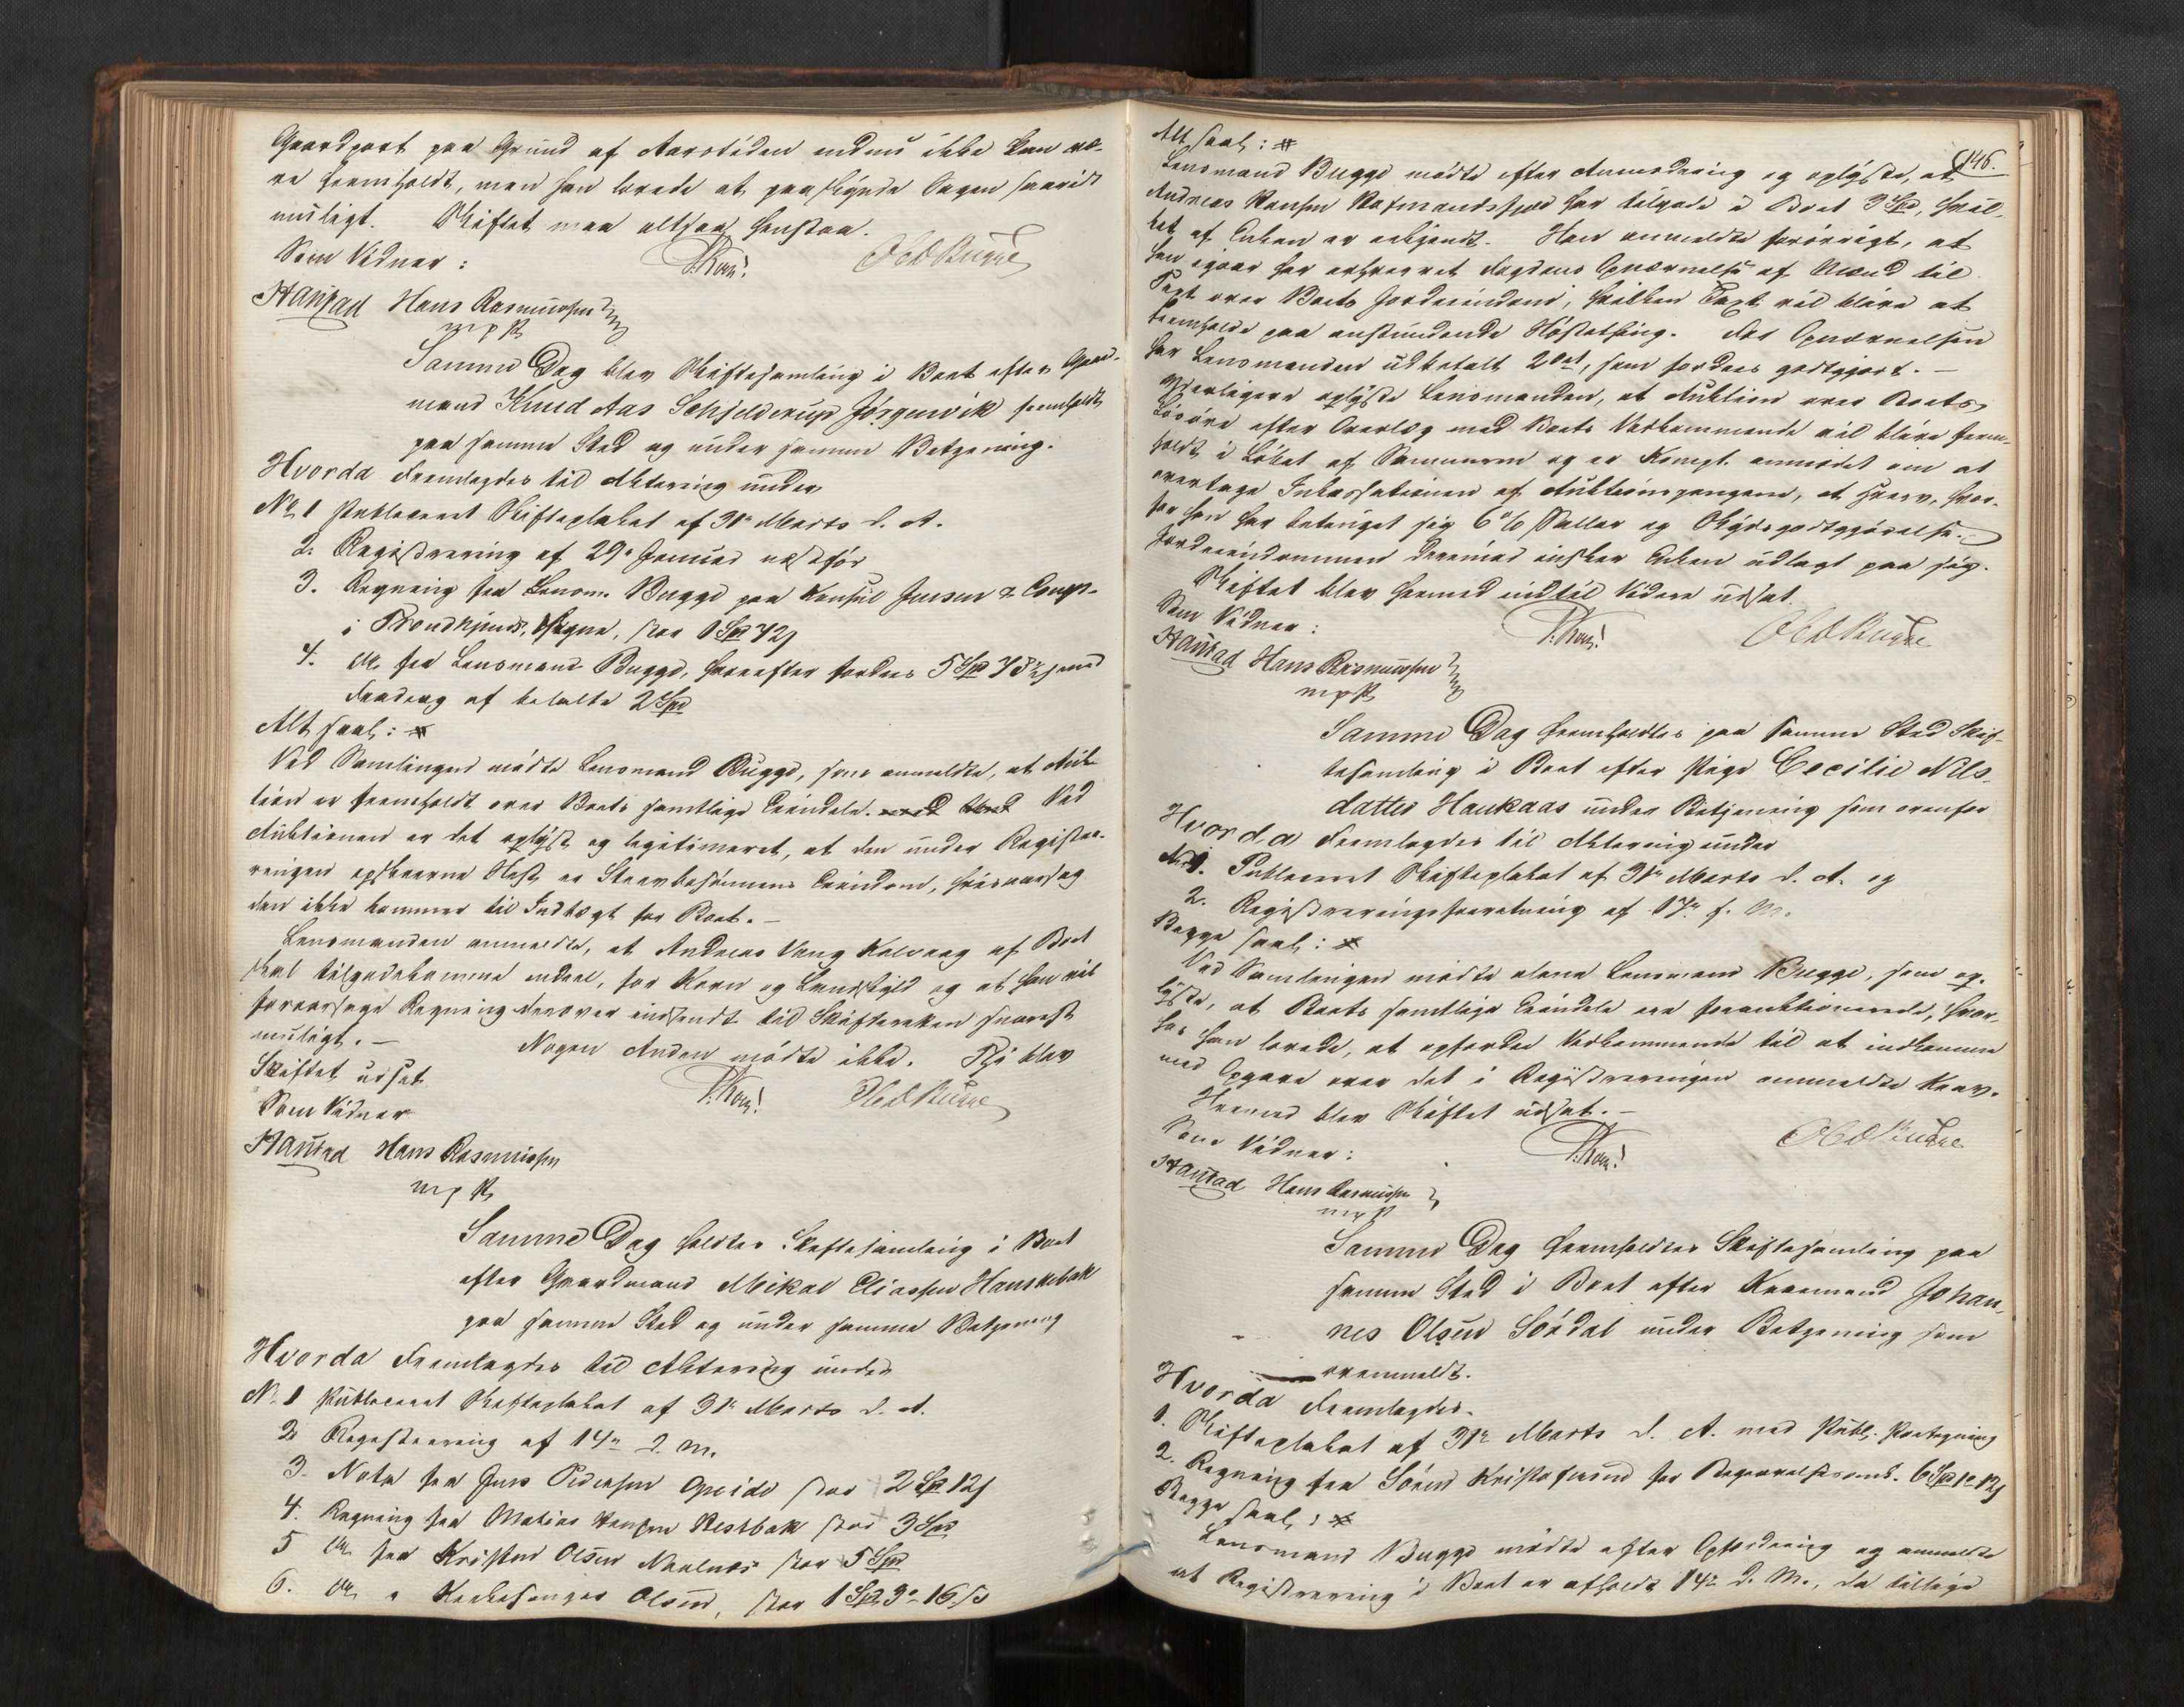 Gaardpart paa Grund af Aarstiden endnu ikke kan væ-
re fremholdt, men han lovede at paaskynde Sagen snarest
muligt. Skiftet maa altsaa henstaa.
Som Vidner:
Hans Rasmussen
mpP
Samme Dag blev Skiftesamling i Boet efter Gaard-
mand Knud Aas Schjelderup Jørgenvik fremholdt
paa samme Sted og under samme Betjening.
Hvorda Fremlagdes til Aktering under
No 1 Publiceret Skifteplakat af 31te Marts d. A.
2. Registrering af 29de Januar næstfør
3. Regning fra Lensm. Bugge paa Konsul Jensen & Comp.
i Trondhjem, stor 1 Spd 72 s
4. do fra Lensmand Bugge, hvorefter fordres 5 Spd med
Fradrag af betalte 2 Spd
Alt saal: #
Ved Samlingen mødte Lensmand Bugge, som anmeldte, at Auk-
tion er fremholdt over Boets samtlige Eiendele. Ved
Auktionen er det oplyst og legitimeret, at den under Registre-
ringen opskrevne Hest er Stervbosønnens Eiendom, hvisaarsag
den ikke kommer til Indtægt for Boet.—
Lensmanden anmeldte, at Andreas Vaag Kalvaag af Boet
skal tilgodekomme endeel, for Korn og Landskyld og at han vil
foraarsage Regning derover indsendt til Skifteretten snarest
muligt.— Nogen Anden mødte ikke. Thi blev
Skiftet udsat
Som Vidner
Hans Rasmussen
mpP
Samme Dag holdtes Skiftesamling i Boet
efter Gaardmand Mikal Eliassen Hauskebak
paa samme Sted og under samme Betjening
Hvorda Fremlagdes til Aktering under
No 1 Publiceret Skifteplakat af 31te Marts d. A.
2 Registrering af 14de d. M.
3. Nota fra Jens Pedersen stor 2 Spd 12 s
4. Regning fra Matias Hansen Restbak stor 3 Spd
5 do fra Kristen Olsen stor 5 Spd
6. do " Kirkesanger Olsen, stor 1 Spd 3 16 s
146.
Alt saal: #
Lensmand Bugge mødte efter Anmodning og oplyste, at
Andreas Hansen har tilgode i Boet 3 Spd, hvil-
ket af Enken er erkjendt. Han anmeldte forøvrigt, at
han igaar har erhvervet Fogdens Opnævnelse af Mænd til
Taxt over Boets Jordeiendom, hvilken Taxt vil blive at
fremholde paa anstundende Høstething. For Opnævnelsen
har Lensmanden udbetalt 20 s, som fordres godtgjort.—
Yderligere oplyste Lensmanden, at Auktion over Boets
Løsøre efter Overlæg med Boets Vedkommende vil blive frem-
holdt i Løbet af Sommeren og er Kompt. anmodet om at
overtage Inkassationen af Auktionspengene, hvor-
for han har betinget sig 6 % Sallar og Skydsgodtgjørelse.
Jordeiendommen derimod ønsker Enken udlagt paa sig.
Skiftet blev hermed indtil Videre udsat.
Som Vidner:
Hans Rasmussen
mpP
Samme Dag fremholdtes paa samme Sted Skif-
tesamling i Boet efter Pige Cecilie Nils-
datter Haukaas under Betjening som ovenfor
Hvorda Fremlagdes til Aktering under
No 1. Publiceret Skifteplakat af 31te Marts d. A. og
2. Registreringsforretning af 17de f. M.
Begge saal: #
Ved Samlingen mødte alene Lensmand Bugge, som op-
lyste, at Boets samtlige Eiendele ere forauktionerede, hvor-
hos han lovede, at opfordre Vedkommende til at indkomme
med Opgave over det i Registreringen anmeldte Krav.
Hermed blev Skiftet udsat.—
Som Vidner:
Hans Rasmussen
mpP
Samme Dag fremholdtes Skiftesamling paa
samme Sted i Boet efter Kaarmand Johan-
nes Olsen Sørdal under Betjening som
ovenmeldt.
Hvorda Fremlagdes.
1. Skifteplakat af 31te Marts d. A. med Publ. Paategning
2. Regning fra Sören Kristofersen for Begravelsesomk. 6 Spd 1 12 s
Begge saal: #
Lensmand Bugge mødte efter Opfordring og anmeldte
at Registrering i Boet er afholdt 14de d. M., da tillige